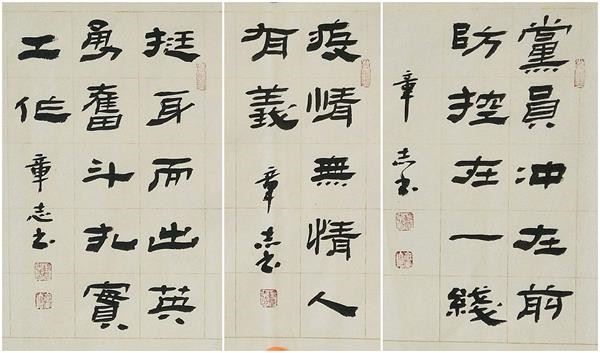 黨員冲在前
防控在一綫
章志书
疫情無情人
有義
章志书
挺身而出英
勇奮斗扎實
工作
章志书